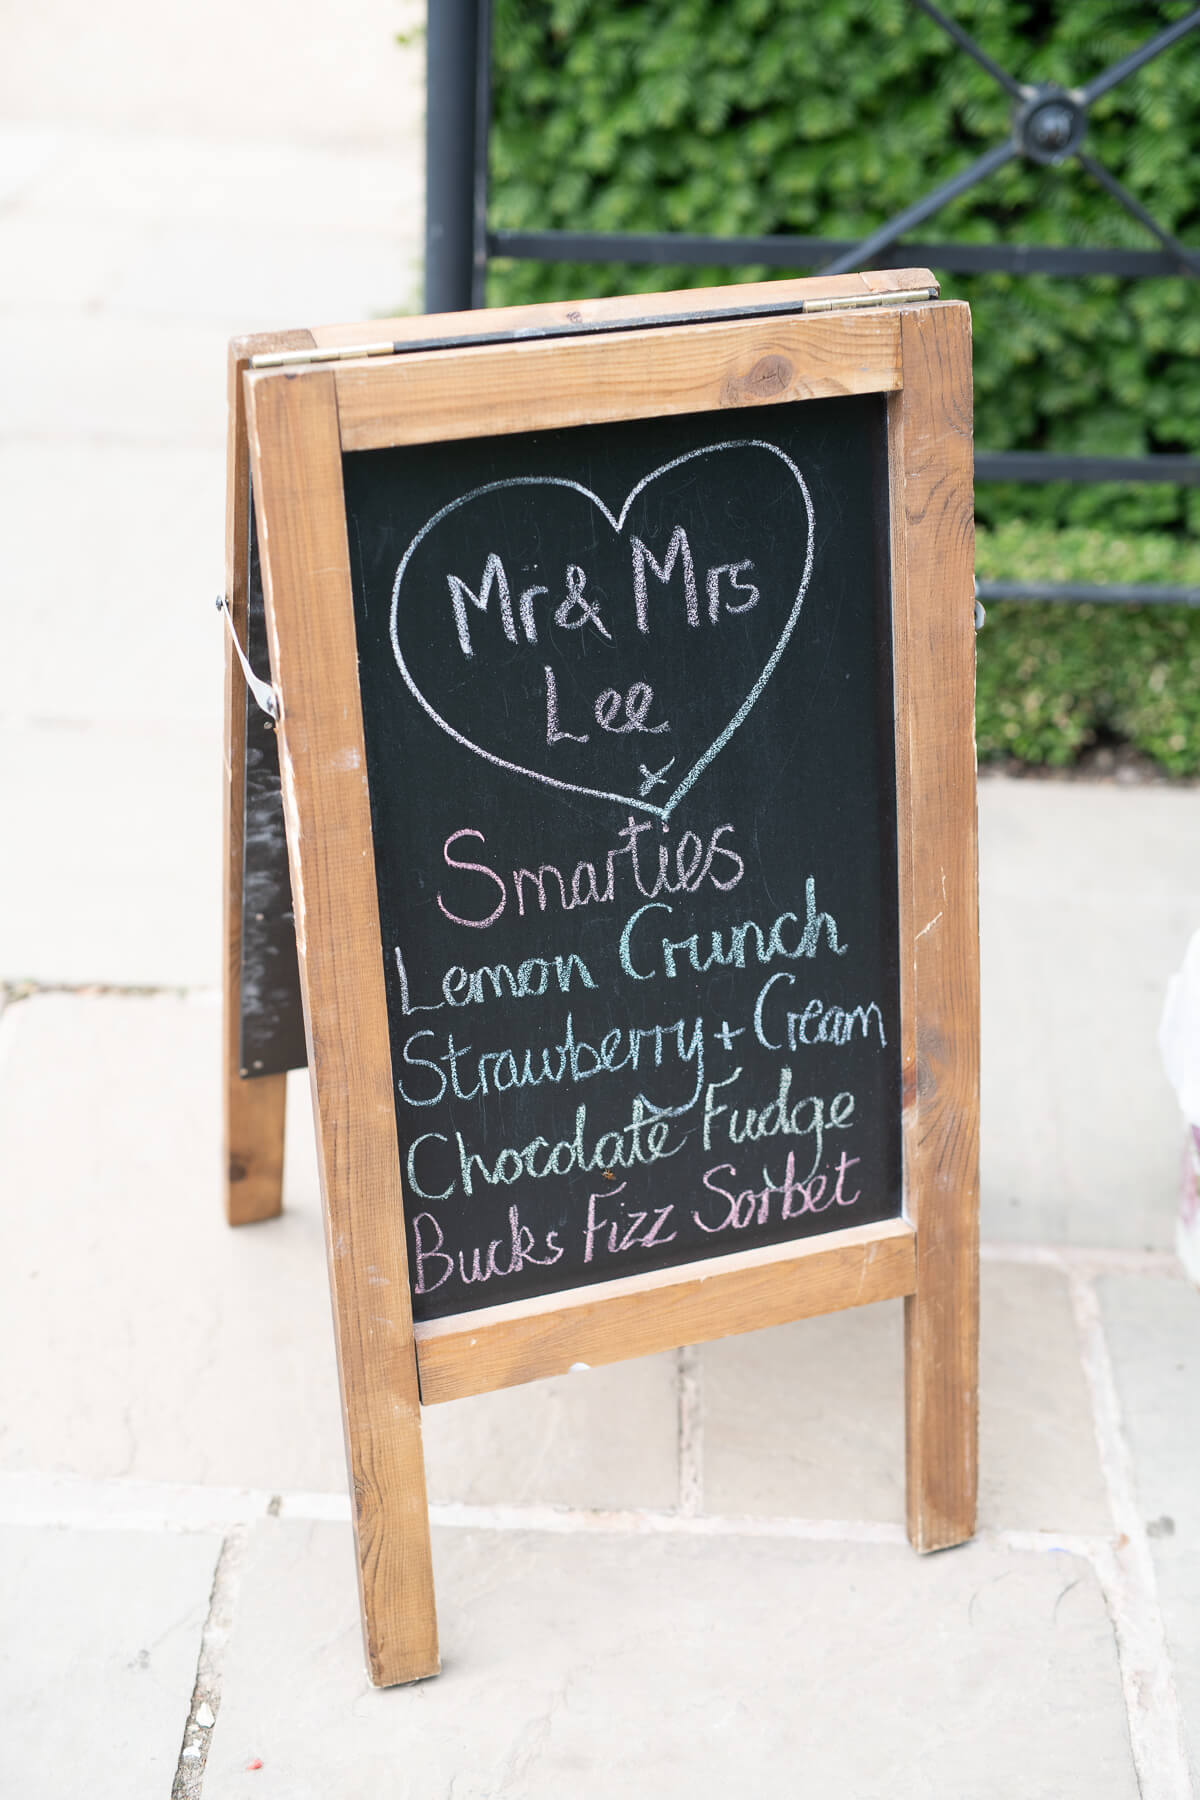 Mr & Mrs
Lee
x
Smarties
Lemon Crunch
Strawberry + Cream
Chocolate Fudge
Bucks Fizz Sorbet